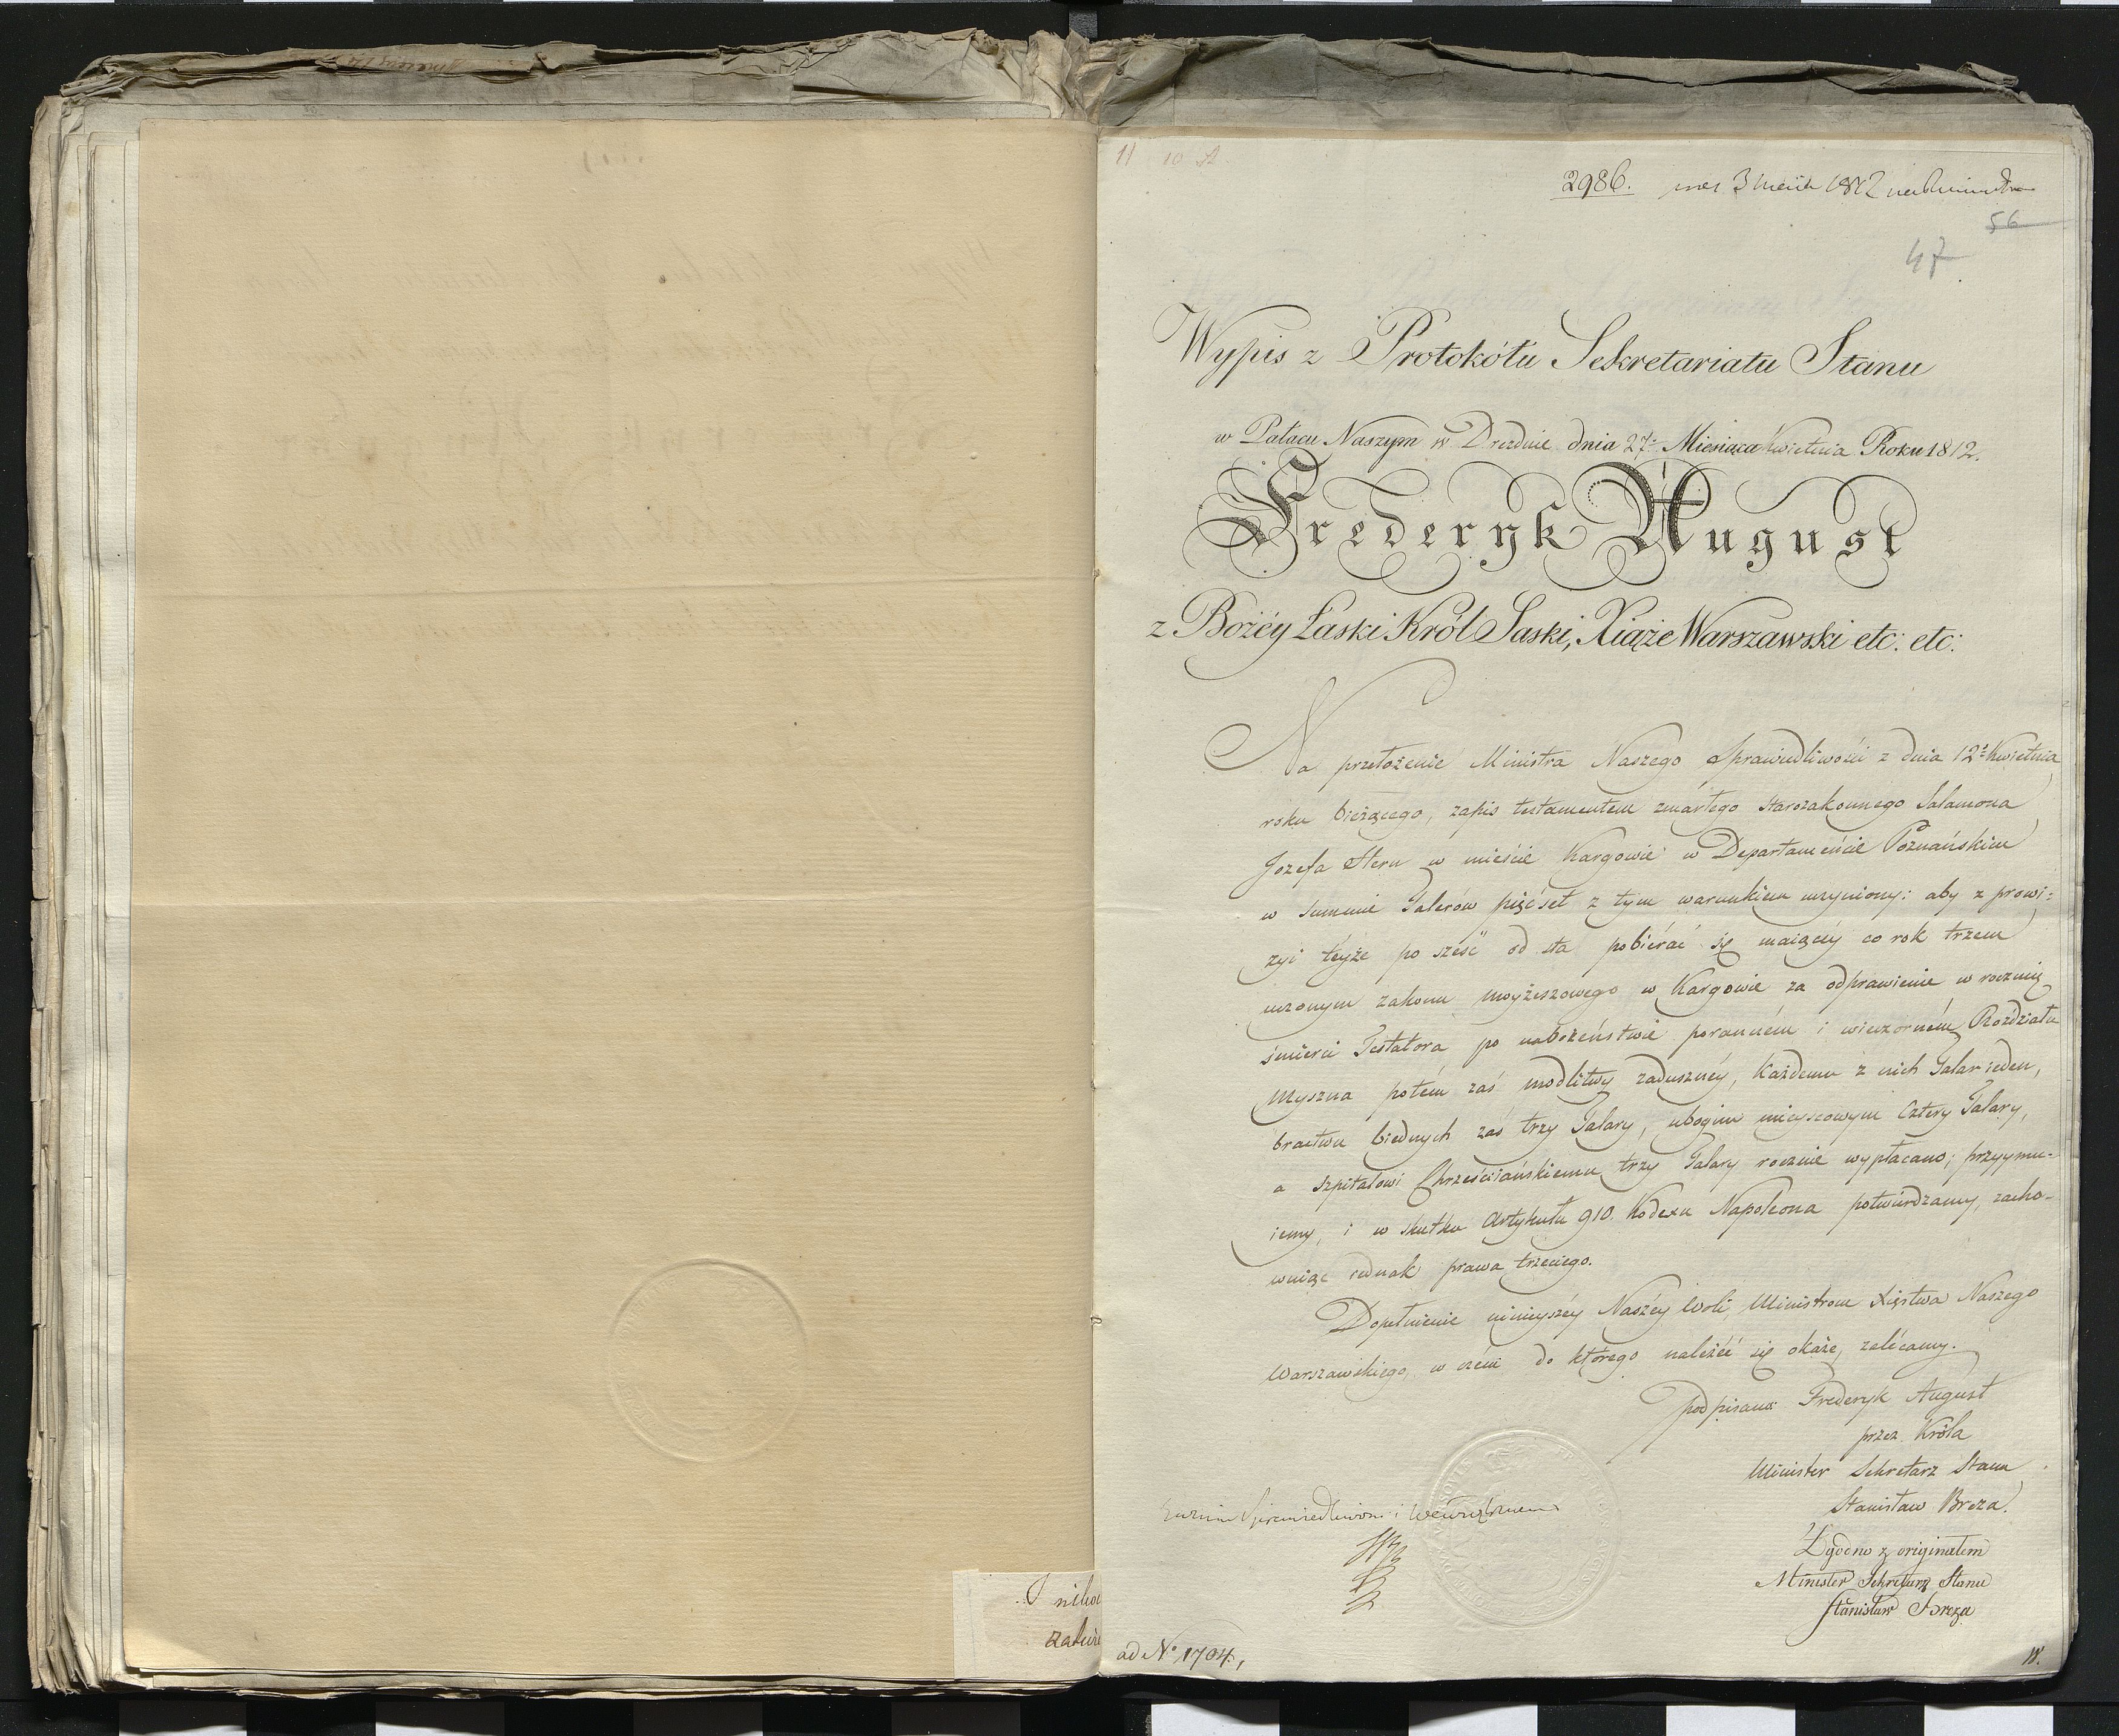 11 10
2986.
56
47
Wypis z Protokółu Sekretariatu Stanu
w Pałacu Naszym w Dreźnie dnia 27. Miesiąca Kwietnia Roku 1812.
Frederyk August
z Bożéy Łaski Król Saski, Xiąże Warszawski etc: etc:
Na przełożenie Ministra Naszego Sprawiedliwości z dnia 12. Kwietnia
roku bieżącego, zapis testamentem zmarłego starozakonnego Salamona
Jozefa Stern w mieście Kargowie w Departamencie Poznańskim
w summie Talerów pięćset z tym warunkiem uczyniony: aby z prowi=
zyi teyże po sześć od sta pobiérać się maiącéy co rok trzem
uczonym zakonu moyżeszowego w Kargowie za odprawienie w rocznicę
śmierci Testatora, po nabożeństwie poranném i wieczorném Rozdziału
Myszna potém zaś modlitwy zadusznéy, każdemu z nich Talar ieden,
bractwu biednych zaś trzy Talary, ubogim mieyscowym cztery Talary,
a szpitalowi Chrześciańskiemu trzy Talary rocznie wypłacano; przyymu-
iemy, i w skutku Artykułu 910. Kodexu Napoleona potwierdzamy, zacho-
wuiąc iednak prawa trzeciego.
Dopełnienie ninieyszéy Naszéy Woli, Ministrom Xięstwa Naszego
Warszawskiego, w czém do którego należéć się okaże, zalécamy.
podpisano Frederyk August
przez Króla
Minister Sekretarz Stanu
Stanisław Breza.
Zgodno z originałem
Minister Sekretarz Stanu
Stanisław Breza
ad No 1704.